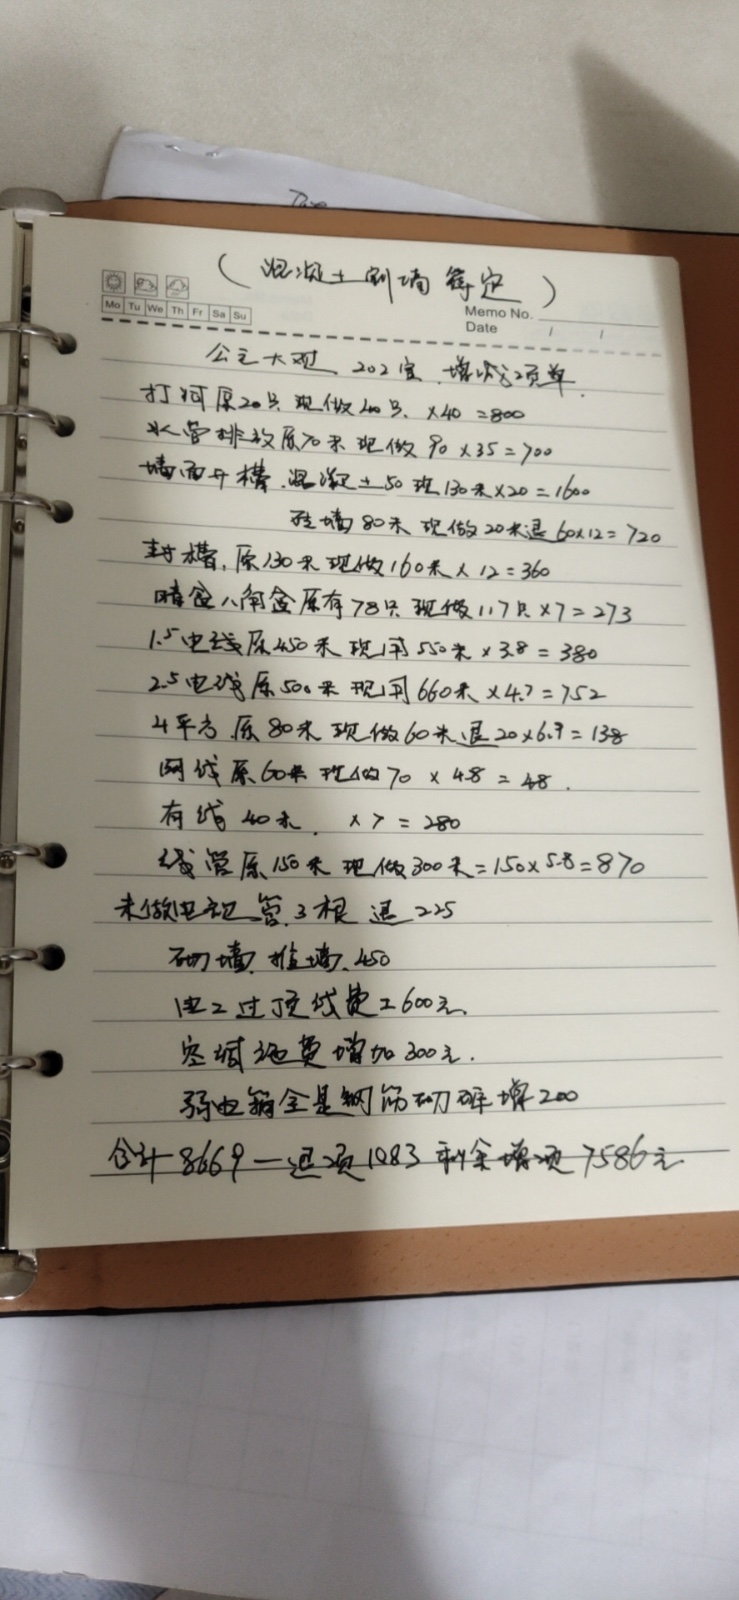 (混凝土刷墙等定)
Mo Tu We Th Fr Sa Su
Memo No.
Date / /
公主大观、202室、增减项单
打河原20只 现做40只、×40 =800
水管排放原70米 现做 90 ×35=700
墙面开槽、混凝土50 现130米×20=1600
砖墙80米 现做20米退60×12=720
封槽, 原130米现做160米×12=360
暗盒八角盒原有78只 现做117只×7=273
1.5电线原450米 现用550米×3.8=380
2.5电线原500米 现用660米×4.7=752
4平方 原80米现做60米退20×6.9=138
网线原60米 现做70 ×4.8 =48.
有线40米. ×7=280
线管原150米现做300米=150×5.8=870
未做电视管3根 退225
砌墙 推墙、450
电工过顶线费工600元、
空调洞费增加300元.
弱电箱全是钢筋砌砖增200
合计8669一退项1083 剩余增项7586元